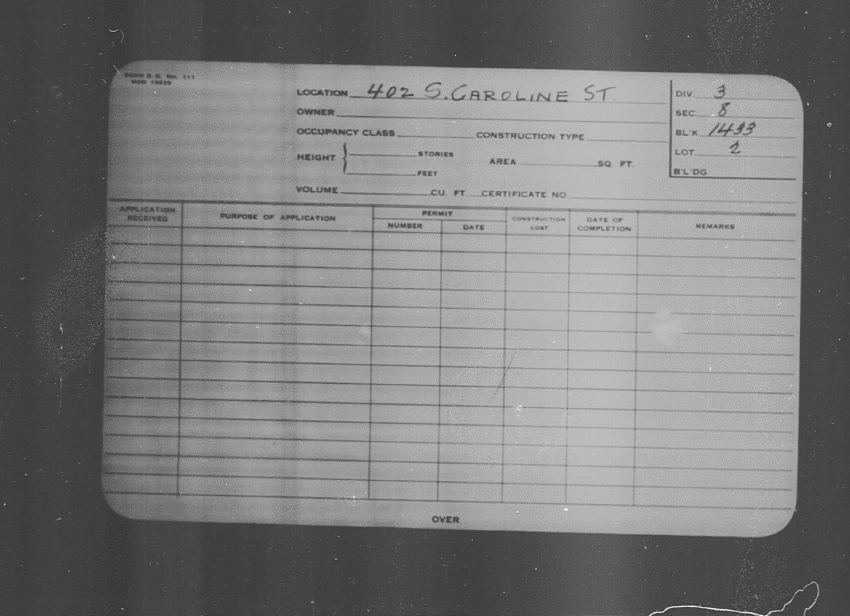 FORM B.R. No. 111
MOD 15629
LOCATION 402 S. CAROLINE ST
DIV. 3
OWNER
SEC 8
OCCUPANCY CLASS CONSTRUCTION TYPE
BL'K 1433
HEIGHT { STORIES AREA SQ FT.
FEET
LOT 2
B'L'DG
VOLUME CU. FT. CERTIFICATE NO
APPLICATION RECEIVED PURPOSE OF APPLICATION PERMIT NUMBER DATE CONSTRUCTION COST DATE OF COMPLETION REMARKS
OVER